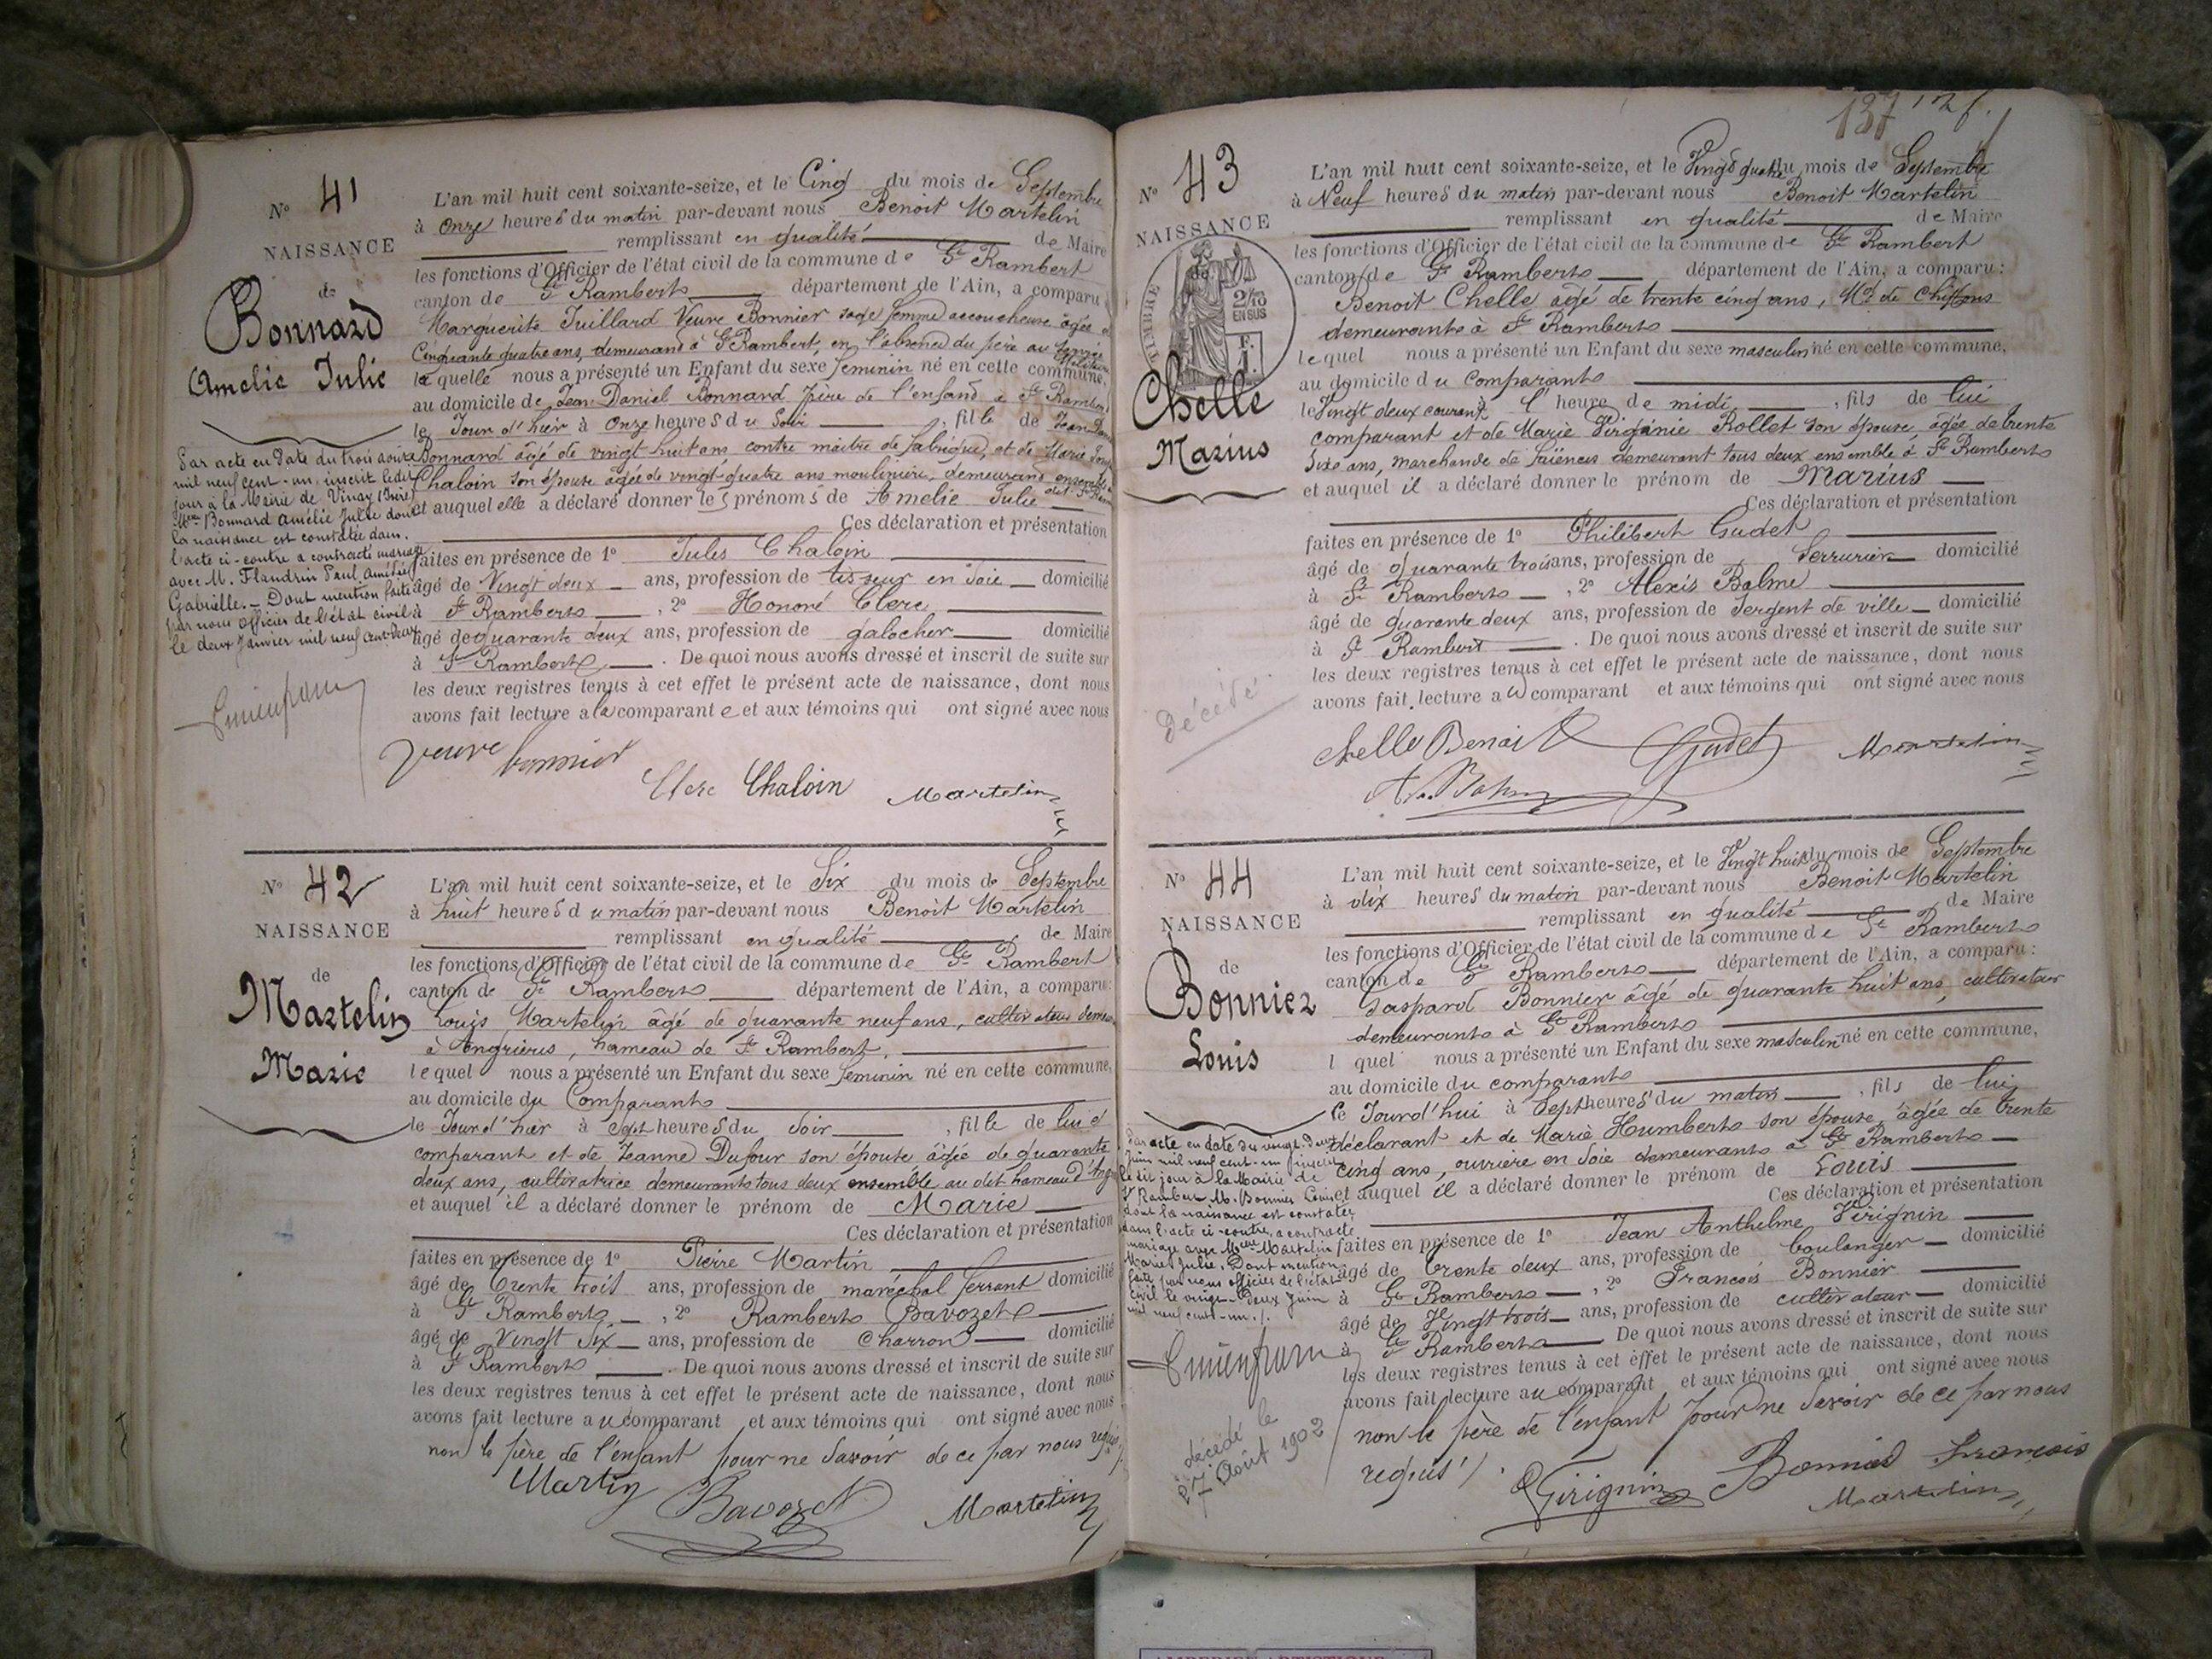 N° 41
NAISSANCE
de
Bonnard
Amelie Julie
L'an mil huit cent soixante-seize, et le Cinq du mois de Septembre
à onze heures du matin par-devant nous Benoit Martelin
remplissant en qualité de Maire
les fonctions d'Officier de l'état civil de la commune de St Rambert
canton de St Rambert département de l'Ain, a comparu
Marguerite Juillard Veuve Bonnier sage femme accoucheuse âgée de
Cinquante quatre ans, demeurant à St Rambert, en l'absence du père au
laquelle nous a présenté un Enfant du sexe feminin né en cette commune,
au domicile de Jean Daniel Bonnard père de l'enfant à St Rambert
le Jour d'hier à onze heures du Soir, fille de Jean
Bonnard âgé de vingt huit ans contre maitre de fabrique, et de Marie
Chaloin son épouse âgée de vingt quatre ans moulinière, demeurant ensemble
et auquel elle a déclaré donner les prénoms de Amelie Julie
Ces déclaration et présentation
faites en présence de 1° Jules Chaloin
âgé de Vingt deux ans, profession de tisseur en Soie domicilié
à St Rambert, 2° Honoré Clerc
âgé de quarante deux ans, profession de galocher domicilié
à St Rambert. De quoi nous avons dressé et inscrit de suite sur
les deux registres tenus à cet effet le présent acte de naissance, dont nous
avons fait lecture a la comparante et aux témoins qui ont signé avec nous
Par acte en date du trois
mil neuf cent-un inscrit ledit
jour à la Mairie de Vinay (Isère)
Bonnard Amélie Julie dont
la naissance est constatée dans
l'acte ci-contre a contracté mariage
avec M. Flandrin Paul Amédée
Gabrielle. - Dont mention faite
par nous Officier de l'état civil
le deux Janvier mil neuf cent-deux
veuve bonnier
Clerc Chaloin Martelin
N° 42
NAISSANCE
de
Martelin
Marie
L'an mil huit cent soixante-seize, et le Six du mois de Septembre
à huit heures du matin par-devant nous Benoit Martelin
remplissant en qualité de Maire
les fonctions d'Officier de l'état civil de la commune de St Rambert
canton de St Rambert département de l'Ain, a comparu:
Louis Martelin âgé de quarante neuf ans, cultivateur
à Angrières, hameau de St Rambert,
lequel nous a présenté un Enfant du sexe feminin né en cette commune,
au domicile du Comparant
le Jour d'hier à Sept heures du Soir, fille de lui
comparant et de Jeanne Dufour son épouse âgée de quarante
deux ans, cultivatrice demeurants tous deux ensemble au dit hameau
et auquel il a déclaré donner le prénom de Marie
Ces déclaration et présentation
faites en présence de 1° Pierre Martin
âgé de Trente trois ans, profession de maréchal ferrant domicilié
à St Rambert, 2° Rambert Bavozet
âgé de Vingt Six ans, profession de Charron domicilié
à St Rambert. De quoi nous avons dressé et inscrit de suite sur
les deux registres tenus à cet effet le présent acte de naissance, dont nous
avons fait lecture au comparant et aux témoins qui ont signé avec nous
non le père de l'enfant pour ne Savoir de ce par nous requis
Martin Bavozet Martelin
137
N° 43
NAISSANCE
TIMBRE
2/10
EN SUS
Chelle
Marius
L'an mil huit cent soixante-seize, et le Vingt quatre du mois de Septembre
à Neuf heures du matin par-devant nous Benoit Martelin
remplissant en qualité de Maire
les fonctions d'Officier de l'état civil de la commune de St Rambert
canton de St Rambert département de l'Ain, a comparu:
Benoit Chelle âgé de trente cinq ans, Md de Chiffons
demeurant à St Rambert
lequel nous a présenté un Enfant du sexe masculin né en cette commune,
au domicile du Comparant
le Vingt deux courant à l'heure de midi, fils de lui
comparant et de Marie Virginie Rollet son épouse âgée de trente
Six ans, marchande de faïences demeurant tous deux ensemble à St Rambert
et auquel il a déclaré donner le prénom de Marius
Ces déclaration et présentation
faites en présence de 1° Philibert Gudet
âgé de quarante trois ans, profession de Serrurier domicilié
à St Rambert, 2° Alexis Balme
âgé de quarante deux ans, profession de Sergent de ville domicilié
à St Rambert. De quoi nous avons dressé et inscrit de suite sur
les deux registres tenus à cet effet le présent acte de naissance, dont nous
avons fait lecture au comparant et aux témoins qui ont signé avec nous
Décédé
Chelle Benoit Gudet Martelin
N° 44
NAISSANCE
de
Bonnier
Louis
L'an mil huit cent soixante-seize, et le Vingt huit du mois de Septembre
à dix heures du matin par-devant nous Benoit Martelin
remplissant en qualité de Maire
les fonctions d'Officier de l'état civil de la commune de St Rambert
canton de St Rambert département de l'Ain, a comparu:
Gaspard Bonnier âgé de quarante huit ans, cultivateur
demeurant à St Rambert
l quel nous a présenté un Enfant du sexe masculin né en cette commune,
au domicile du comparant
le Jourd'hui à Sept heures du matin, fils de lui
déclarant et de Marie Humbert son épouse, âgée de trente
cinq ans, ouvrière en Soie demeurants à St Rambert
et auquel il a déclaré donner le prénom de Louis
Ces déclaration et présentation
faites en présence de 1° Jean Anthelme Girignin
âgé de trente deux ans, profession de boulanger domicilié
à St Rambert, 2° François Bonnier
âgé de Vingt trois ans, profession de cultivateur domicilié
à St Rambert De quoi nous avons dressé et inscrit de suite sur
les deux registres tenus à cet effet le présent acte de naissance, dont nous
avons fait lecture au comparant et aux témoins qui ont signé avec nous
non le père de l'enfant pour ne Savoir de ce par nous
requis
Par acte en date du vingt-deux
Juin mil neuf cent-un inscrit
le dit jour à la Mairie de
St Rambert M. Bonnier Louis
dont la naissance est constatée
dans l'acte ci-contre, a contracté
mariage avec Martelin
Marie Julie. Dont mention
faite par nous officier de l'état
civil le vingt-deux Juin
mil neuf cent-un.
décédé le
7 Août 1902
Girignin Bonnier francois
Martelin